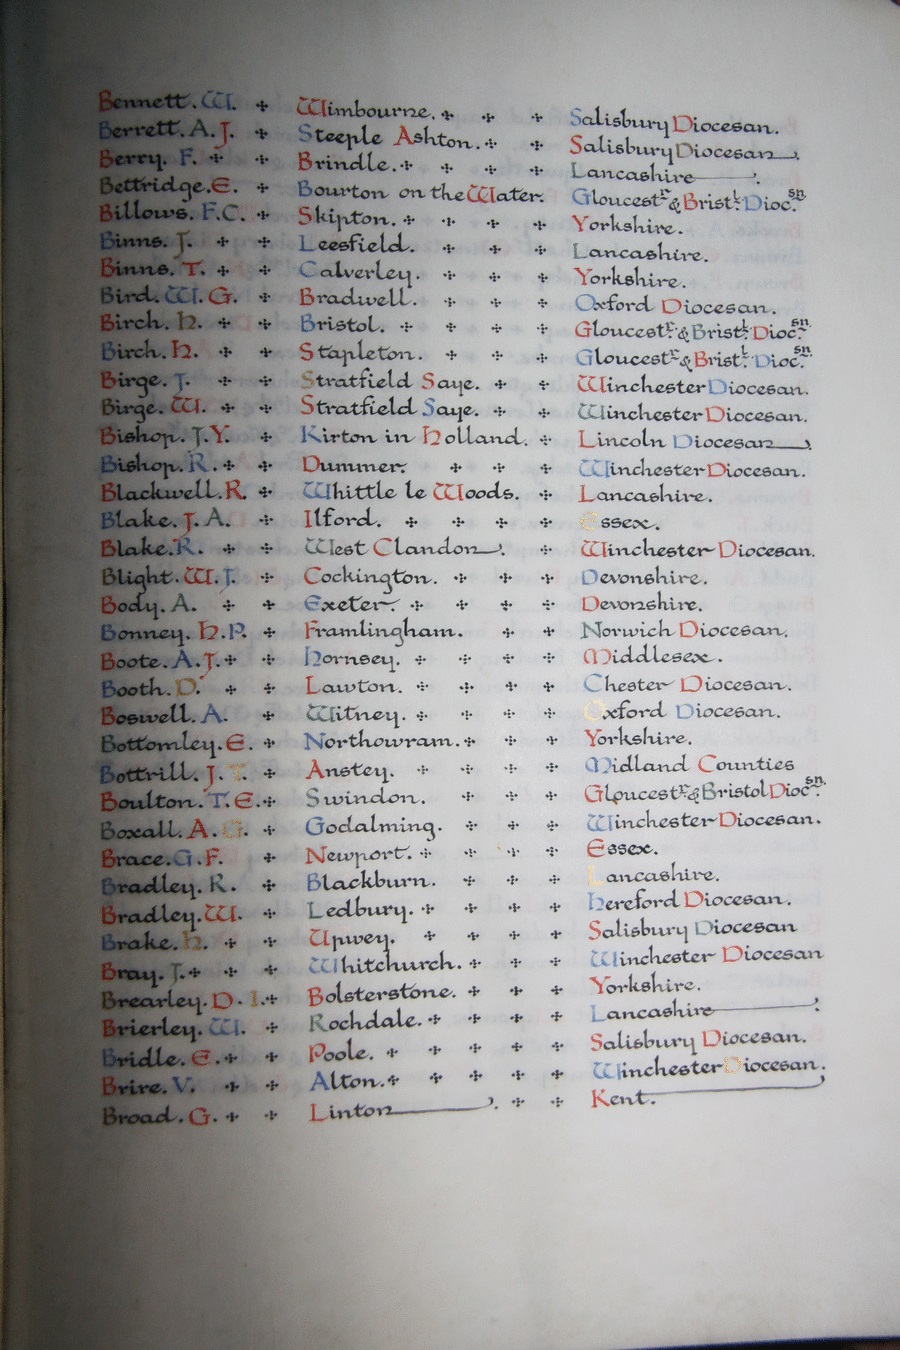 Bennett. W. Wimbourne. Salisbury Diocesan.
Berrett. A. J. Steeple Ashton. Salisbury Diocesan.
Berry. F. Brindle. Lancashire.
Bettridge. E. Bourton on the Water. Gloucestr & Bristl: Diocsn.
Billows. F.C. Skipton. Yorkshire.
Binns. J. Leesfield. Lancashire.
Binns. T. Calverley. Yorkshire.
Bird. W. G. Bradwell. Oxford Diocesan.
Birch. H. Bristol. Gloucestr & Bristl: Diocsn.
Birch. H. Stapleton. Gloucestr & Bristl Diocsn.
Birge. J. Stratfield Saye. Winchester Diocesan.
Birge. W. Stratfield Saye. Winchester Diocesan.
Bishop. J. Y. Kirton in Holland. Lincoln Diocesan.
Bishop. R. Dummer. Winchester Diocesan.
Blackwell. R. Whittle le Woods. Lancashire.
Blake. J. A. Ilford. Essex.
Blake. R. West Clandon. Winchester Diocesan.
Blight. W. J. Cockington. Devonshire.
Body. A. Exeter. Devonshire.
Bonney. H. P. Framlingham. Norwich Diocesan.
Boote. A. J. Hornsey. Middlesex.
Booth. D. Lawton. Chester Diocesan.
Boswell. A. Witney. Oxford Diocesan.
Bottomley. E. Northowram. Yorkshire.
Bottrill. J. T. Anstey. Midland Counties
Boulton. T. E. Swindon. Gloucestr & Bristol Diocsn.
Boxall. A. G. Godalming. Winchester Diocesan.
Brace. G. F. Newport. Essex.
Bradley. R. Blackburn. Lancashire.
Bradley. W. Ledbury. Hereford Diocesan.
Brake. H. Upwey. Salisbury Diocesan
Bray. J. Whitchurch. Winchester Diocesan
Brearley. D. I. Bolsterstone. Yorkshire.
Brierley. W. Rochdale. Lancashire.
Bridle. E. Poole. Salisbury Diocesan.
Brire. V. Alton. Winchester Diocesan.
Broad. G. Linton. Kent.